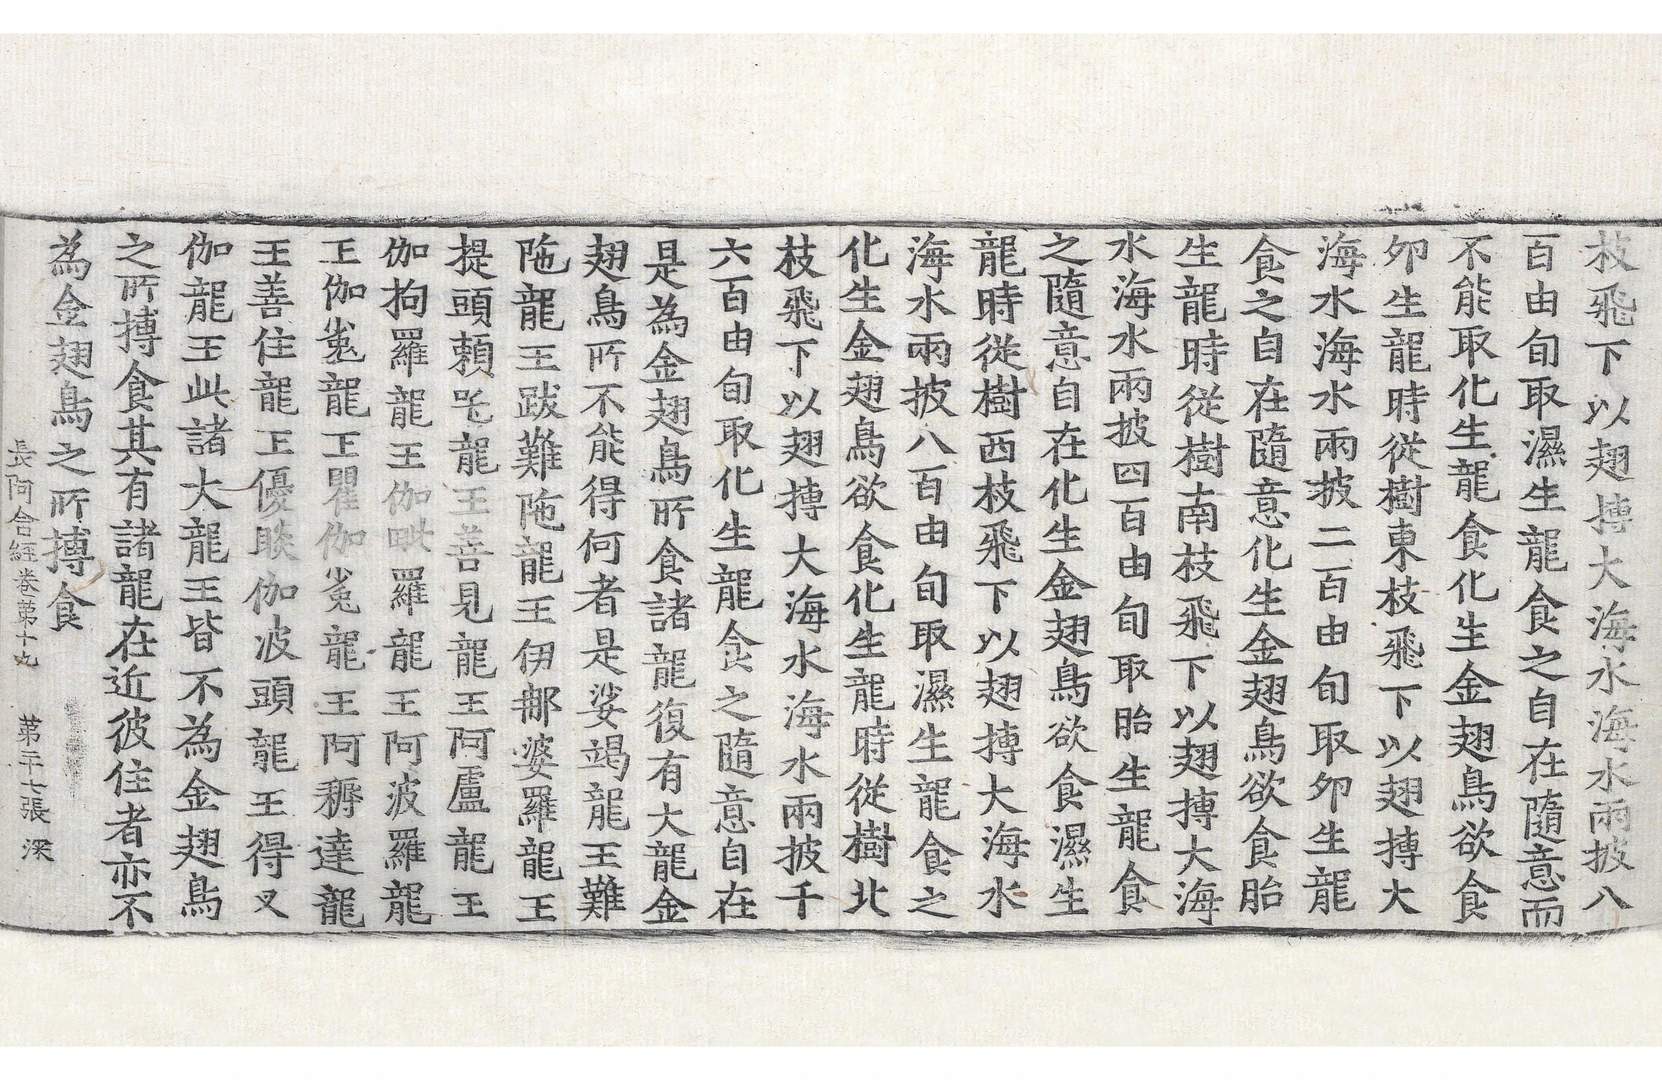 枝飛下以翅摶大海水海水兩披八
百由旬取濕生龍食之自在隨意而
不能取化生龍食化生金翅鳥欲食
夘生龍時從樹東枝飛下以翅摶大
海水海水兩披二百由旬取夘生龍
食之自在隨意化生金翅鳥欲食胎
生龍時從樹南枝飛下以翅摶大海
水海水兩披四百由旬取胎生龍食
之隨意自在化生金翅鳥欲食濕生
龍時從樹西枝飛下以翅摶大海水
海水兩披八百由旬取濕生龍食之
化生金翅鳥欲食化生龍時從樹北
枝飛下以翅摶大海水海水兩披千
六百由旬取化生龍食之隨意自在
是為金翅鳥所食諸龍復有大龍金
翅鳥所不能得何者是娑竭龍王難
陁龍王跋難陁龍王伊那婆羅龍王
提頭賴吒龍王善見龍王阿盧龍王
伽拘羅龍王伽毗羅龍王阿波羅龍
王伽㝹龍王瞿伽㝹龍王阿耨達龍
王善住龍王優睒伽波頭龍王得叉
伽龍王此諸大龍王皆不為金翅鳥
之所摶食其有諸龍在近彼住者亦不
為金翅鳥之所摶食
長阿含經卷第十九 第二十七張 深